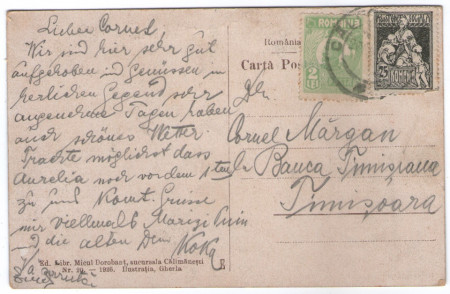 Lieber Cornel,
Wir sind hier sehr gut
aufgehoben und geniessen in
herlichen Gegend sehr
angenehme Tagen haben
auch schönes Wetter
Trachte möglichst dass
Aurelia noch vor dem 1 ten
zu uns komt. Grüsse
mir vielmals
die alten Dein
România
Carta Pos
ROMÂNIA
2
25
ROMÂNIA
Cornel Mărgan
Banca Timișiana
Timișoara
Ed. Libr. Micul Dorobanț, sucursala Călimănești
Ilustrația, Gherla